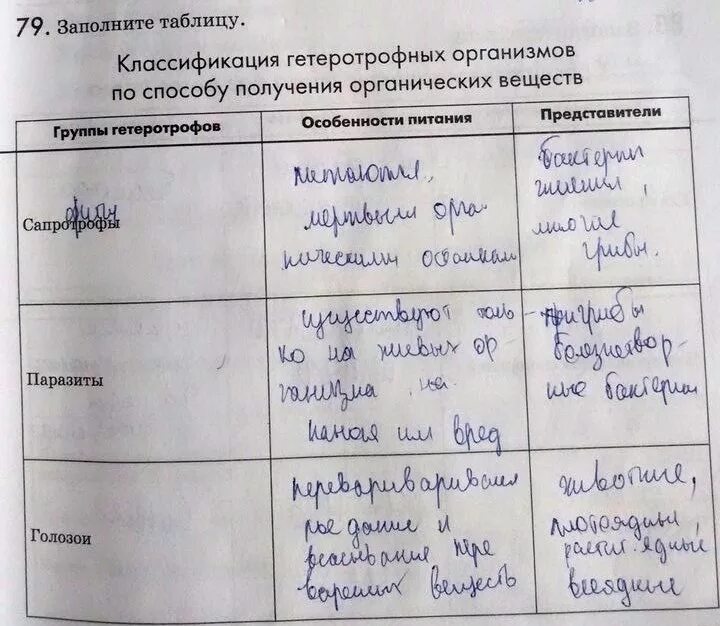 79. Заполните таблицу.
Классификация гетеротрофных организмов
по способу получения органических веществ
Группы гетеротрофов
Особенности питания
Представители
Сапротрофы
питаются
мертвыми орга-
ническими остатками
бактерии
гниения,
многие
грибы.
Паразиты
существуют толь-
ко на живых ор-
ганизма на-
нося им вред
грибы
болезнетвор-
ные бактерии
Голозои
поедание и
всасывание пере
варенных веществ
животные,
плотоядные,
растит. ядные
всеядные